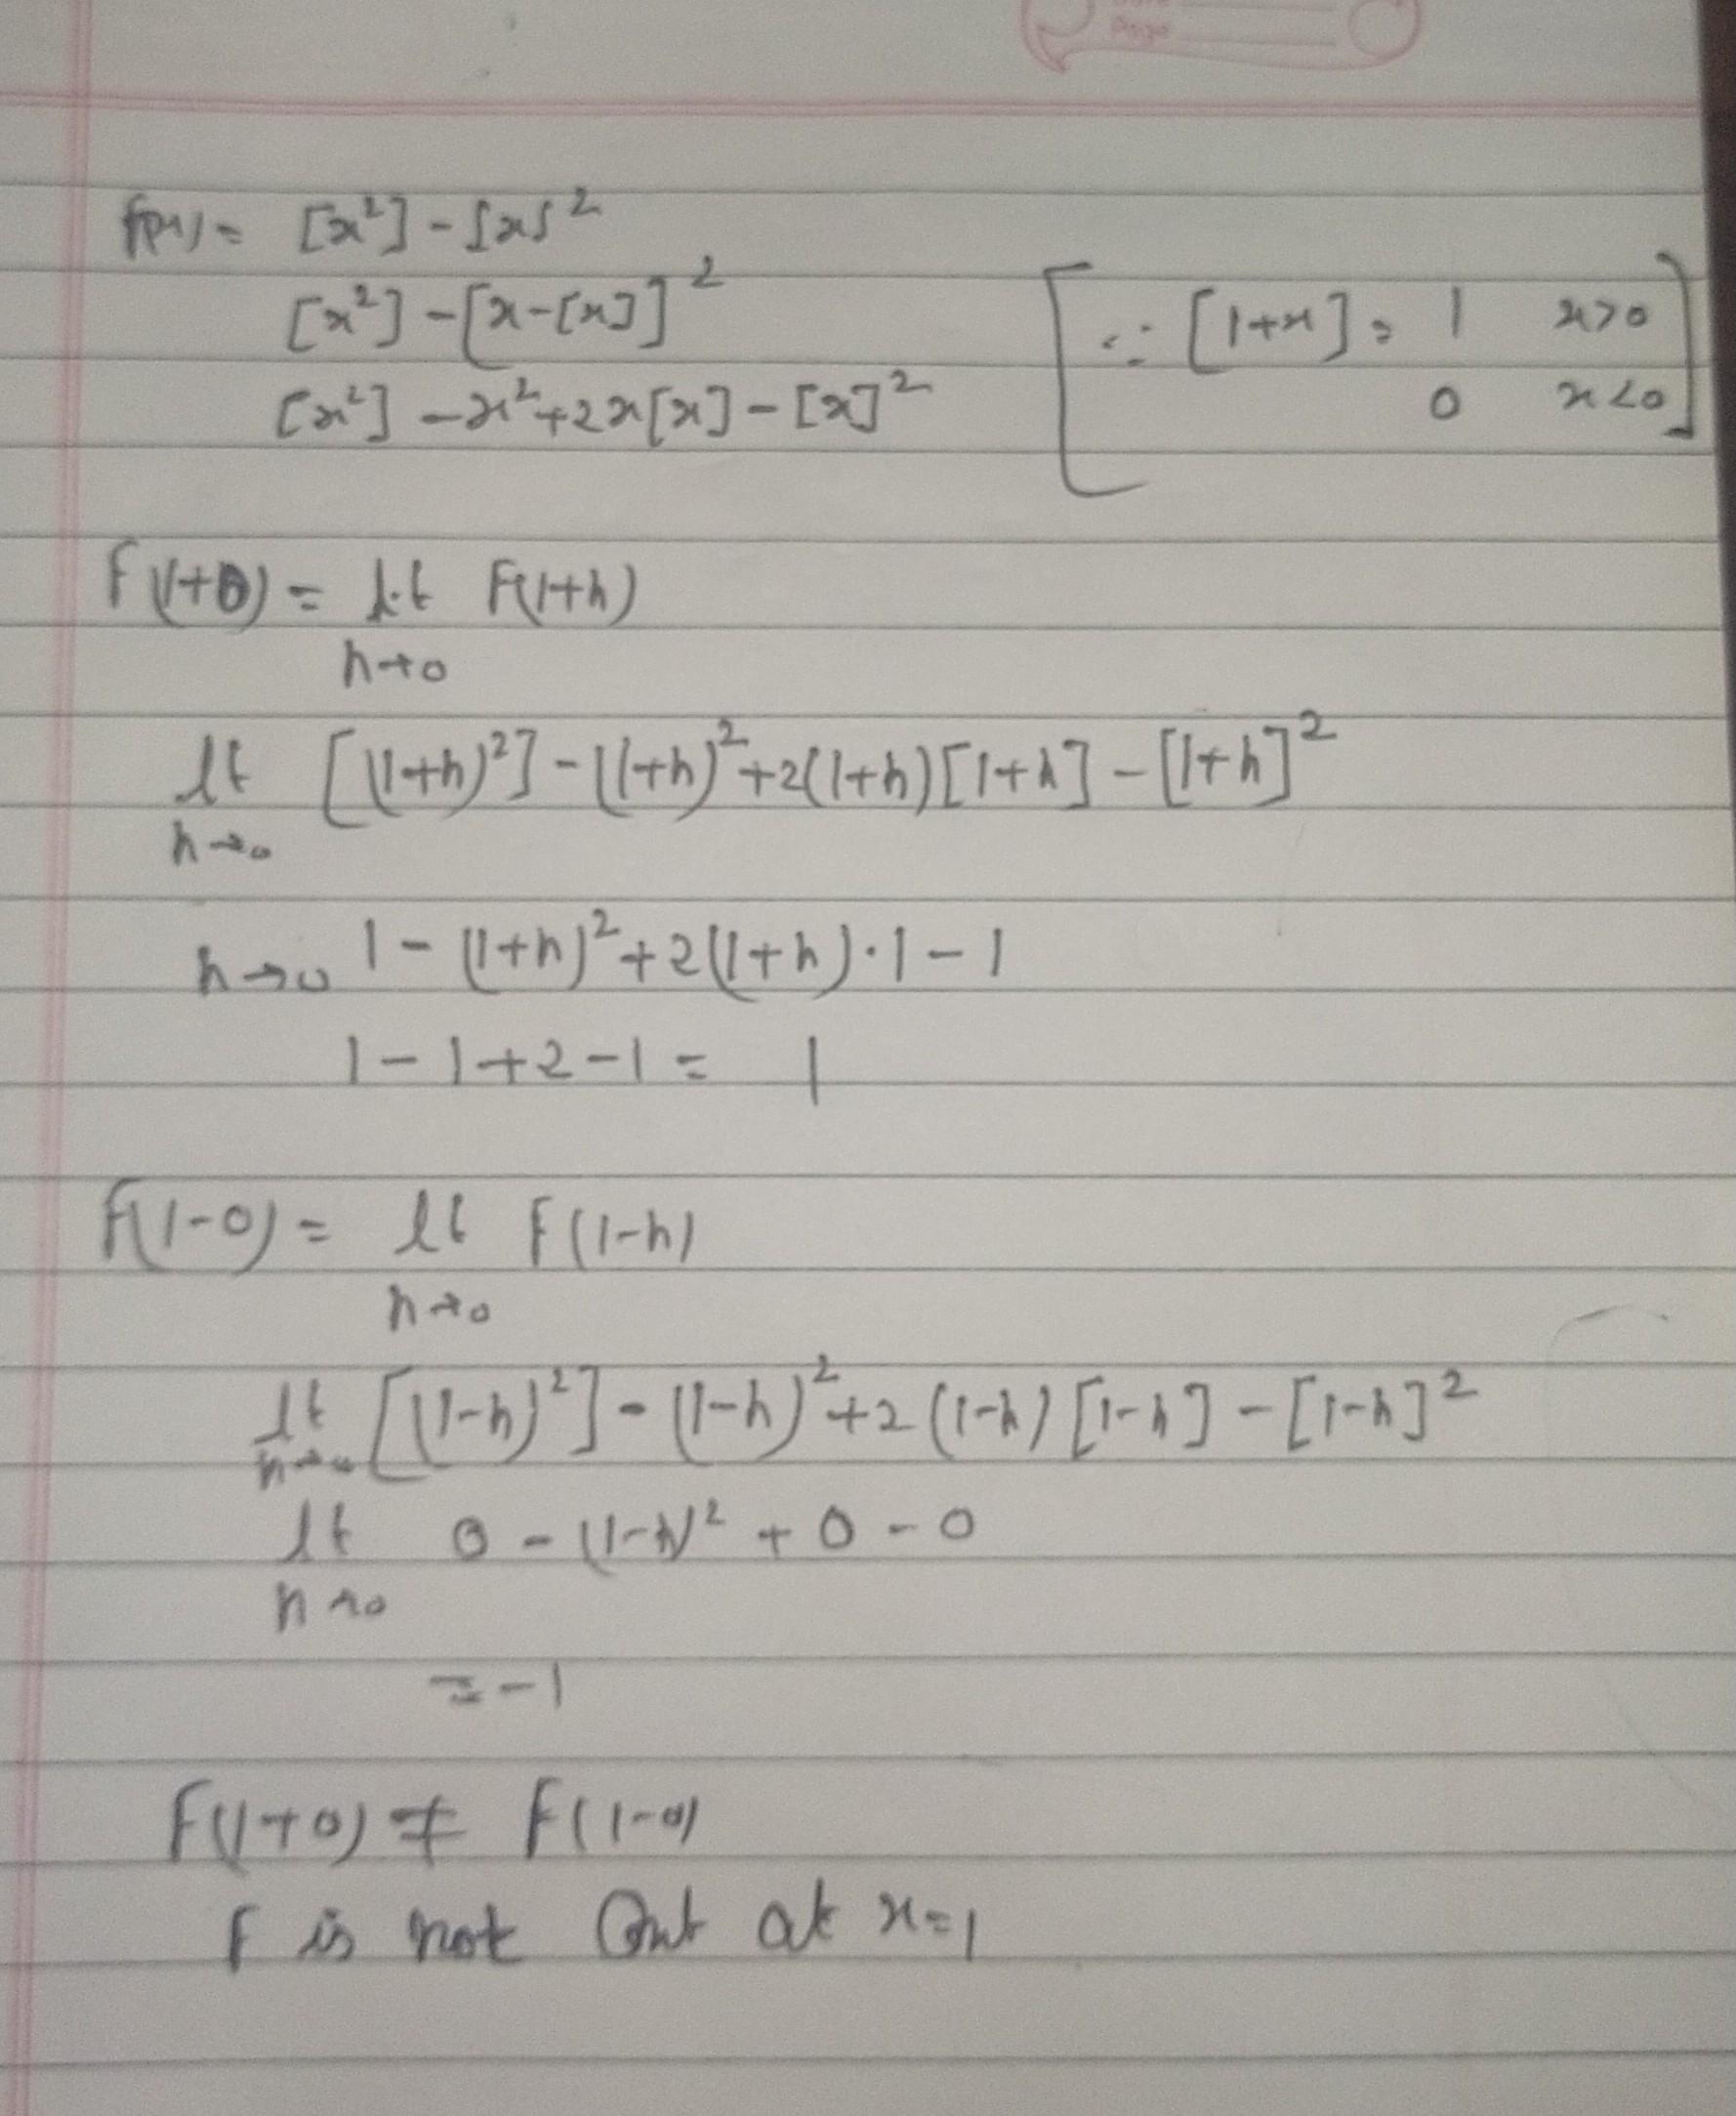 Page
f(x) = [x²] - {x}²
[x²] - [x-[x]]²
[x²] - x² + 2x[x] - [x]²
[∵ [1+x] = 1 x>0
0 x<0]
F(1+0) = lt F(1+h)
h→0
lt [(1+h)²] - (1+h)² + 2(1+h)[1+h] - [1+h]²
h→0
h→0 1 - (1+h)² + 2(1+h)·1 - 1
1 - 1 + 2 - 1 = 1
F(1-0) = lt F(1-h)
h→0
lt [(1-h)²] - (1-h)² + 2(1-h)[1-h] - [1-h]²
h→0
lt 0 - (1-h)² + 0 - 0
h→0
= -1
F(1+0) ≠ F(1-0)
F is not Cont at x=1